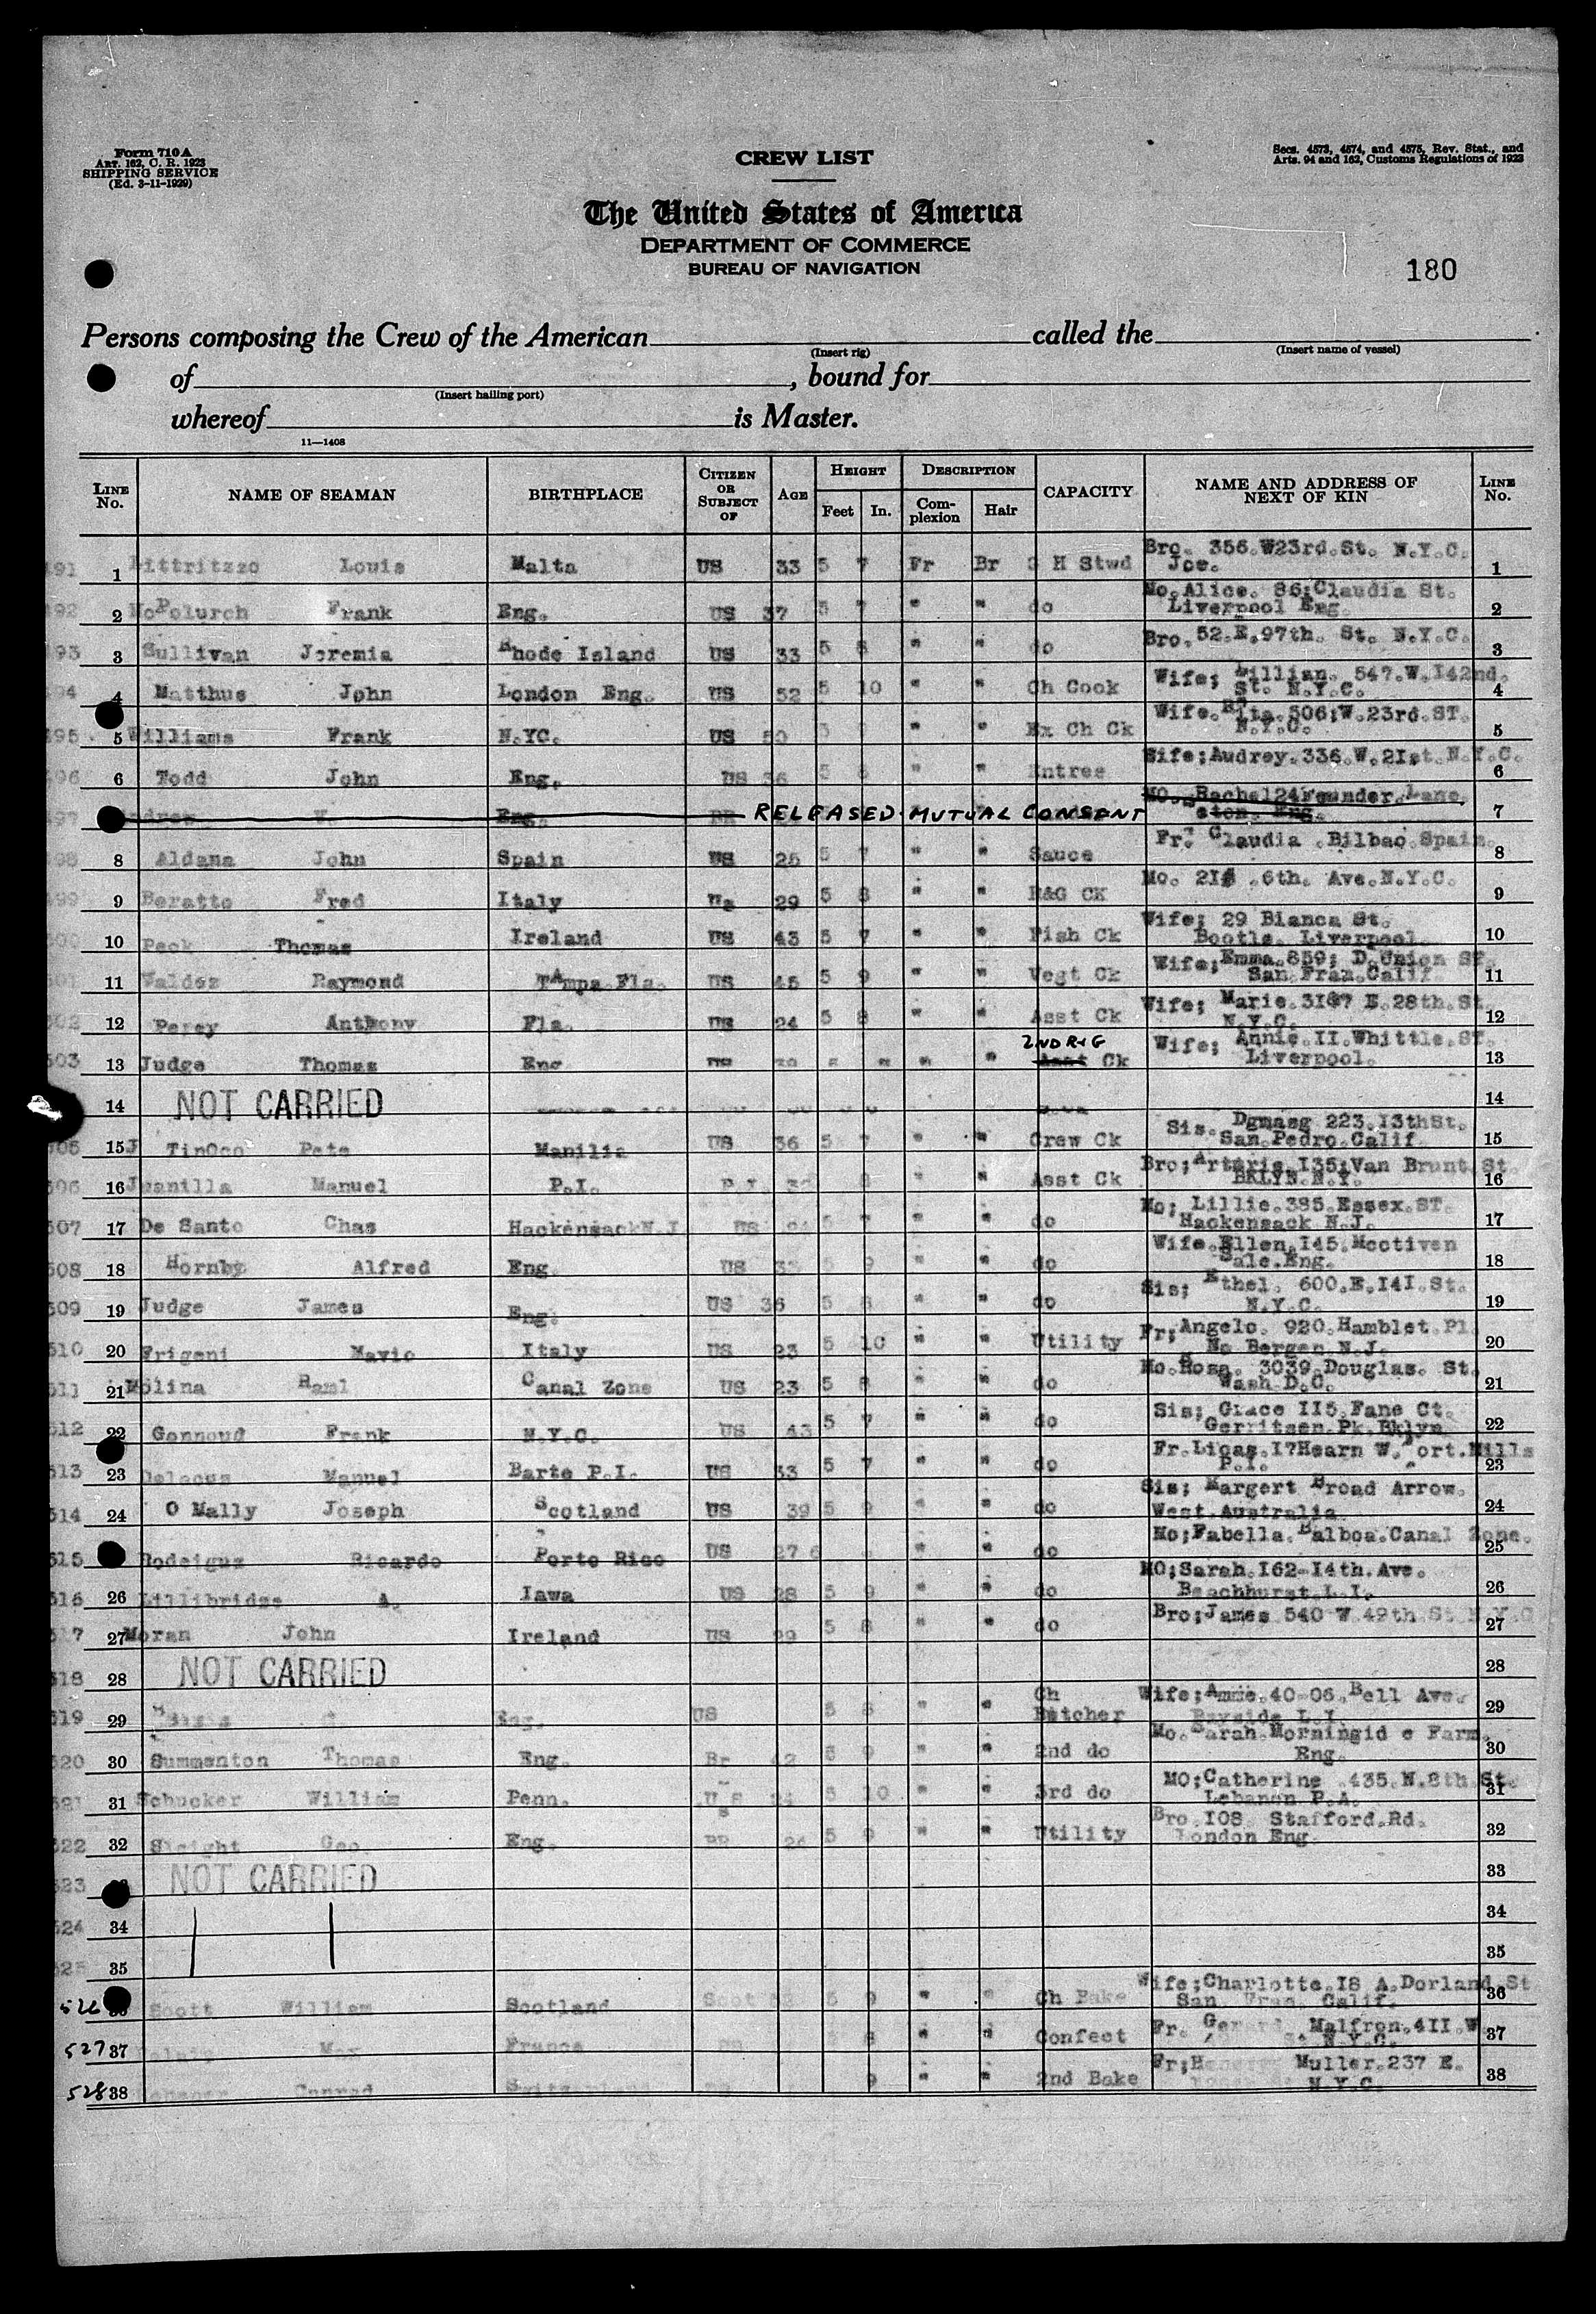 Form 710A
ART. 162, C. R. 1923
SHIPPING SERVICE
(Ed. 3-11-1929)
CREW LIST
Secs. 4573, 4574, and 4575, Rev. Stat., and
Arts. 94 and 162, Customs Regulations of 1923
The United States of America
DEPARTMENT OF COMMERCE
BUREAU OF NAVIGATION
180
Persons composing the Crew of the American called the
(Insert rig) (Insert name of vessel)
of , bound for
(Insert hailing port)
whereof is Master.
11—1408
LINE No. NAME OF SEAMAN BIRTHPLACE CITIZEN OR SUBJECT OF AGE HEIGHT Feet In. DESCRIPTION Complexion Hair CAPACITY NAME AND ADDRESS OF NEXT OF KIN LINE No.
491 1 Littritzzo Louis Malta US 33 5 7 Fr Br H Stwd Bro. 356.W23rd.St. N.Y.C. Joe. 1
492 2 McPolurch Frank Eng. US 37 5 7 " " do Mo.Alice. 86;Claudia St. Liverpool Eng. 2
493 3 Sullivan Jeremia Rhode Island US 33 5 8 " " do Bro.52.E.97th. St. N.Y.C. 3
494 4 Matthus John London Eng. US 52 5 10 " " Ch Cook Wife; 547.W.142nd. St. N.Y.C. 4
495 5 Williams Frank N.YC. US 50 " " Ex Ch Ck Wife. 506;W.23rd.ST. N.Y.C. 5
496 6 Todd John Eng. US 36 5 8 " " Entree Wife;Audrey.336.W.21st.N.Y.C. 6
497 Eng. BR RELEASED MUTUAL CONSENT MO. Rachel 24 Lane. Eng. 7
498 8 Aldana John Spain US 25 5 7 " " Sauce Fr. Claudia .Bilbao.Spain. 8
499 9 Beratto Fred Italy 29 5 8 " " R&G CK Mo. .6th. Ave.N.Y.C. 9
500 10 Peck Thomas Ireland US 43 5 7 " " Fish Ck Wife; 29 Bianca St. Bootle. Liverpool 10
501 11 Valdez Raymond TAmpa.Fla. US 45 5 9 " " Vegt Ck Wife;Emma.859; D.Union ST. San.Fran.Calif 11
502 12 Percy Anthony Fla. US 24 5 8 " " Asst Ck Wife; Marie. E.28th.St. N.Y.C. 12
503 13 Judge Thomas Eng " " 2ND R+G Asst Ck Wife; Annie.II.Whittle.ST. Liverpool. 13
14 NOT CARRIED 14
505 15 TinOco Pete Manilia US 36 5 7 " " Crew Ck Sis. 223.13thSt. San.Pedro.Calif. 15
506 16 Juanilla Manuel P.I. P.I. " " Asst Ck Bro; I35;Van Brunt.St. BKLYN.N.Y. 16
507 17 De Santo Chas HackensackN.J US 24 5 7 " " do Mo; Lillie.385.Essex.ST. Hackensack N.J. 17
508 18 Hornby Alfred Eng. US 33 5 9 " " do Wife.Ellen.I45. Sale.Eng. 18
509 19 Judge James Eng. US 36 5 8 " " do Sis; Ethel. 600.E.I4I.St. N.Y.C. 19
510 20 Frigeni Mavio Italy US 23 5 10 " " Utility Fr;Angelo. 920.Hamblet.Pl. No Bergen N.J. 20
511 21 Molina Raml Canal Zone US 23 5 8 " " do Mo.Rosa. 3039.Douglas. St. Wash D.C. 21
512 22 Gannoud Frank N.Y.C. US 43 5 7 " " do Sis; Grace II5.Fane Ct. Gerritsen.Pk.Bklyn 22
513 23 Delacus Manuel Barte P.I. US 33 5 7 " " do Fr.Ligas.I7Hearn W. Fort.Mills P.I. 23
514 24 O Mally Joseph Scotland US 39 5 9 " " do Sis; Margert Broad Arrow. West.Australia 24
515 Rodeigus Ricardo Porto Rico US 27 6 " " do Mo;Fabella.Balboa.Canal Zone. 25
516 26 Lillibridge A. Iawa US 28 5 9 " " do MO;Sarah.I62-I4th.Ave. Beachhurst.L.I. 26
517 27 Moran John Ireland US 29 5 8 " " do Bro;James 540 W.49th.St N.Y.C 27
518 28 NOT CARRIED 28
519 29 Eng. US 5 8 " " Ch Butcher Wife;Anne.40-06.Bell Ave. Bayside L.I. 29
520 30 Summenton Thomas Eng. Br 42 5 9 " " 2nd do Mo.Sarah.Morningid e Farm. Eng. 30
521 31 Schucker William Penn. U S 24 5 10 " " 3rd do MO;Catherine .435.N.8th.St. Lebanon P.A. 31
522 32 Sleight Geo. Eng. BR 24 5 9 " " Utility Bro.I08 Stafford.Rd. London Eng. 32
523 NOT CARRIED 33
524 34 34
525 35 35
526 Scott William Scotland Scot 5 9 " " Ch Bake Wife;Charlotte.I8 A.Dorland.St San Fran. Calif. 36
527 37 Max France 8 " " Confect Fr. Gerard Malfron.4II.W. St N.Y.C. 37
528 38 Conrad Switzerland 9 " " 2nd Bake Fr; Muller.237 E. N.Y.C. 38